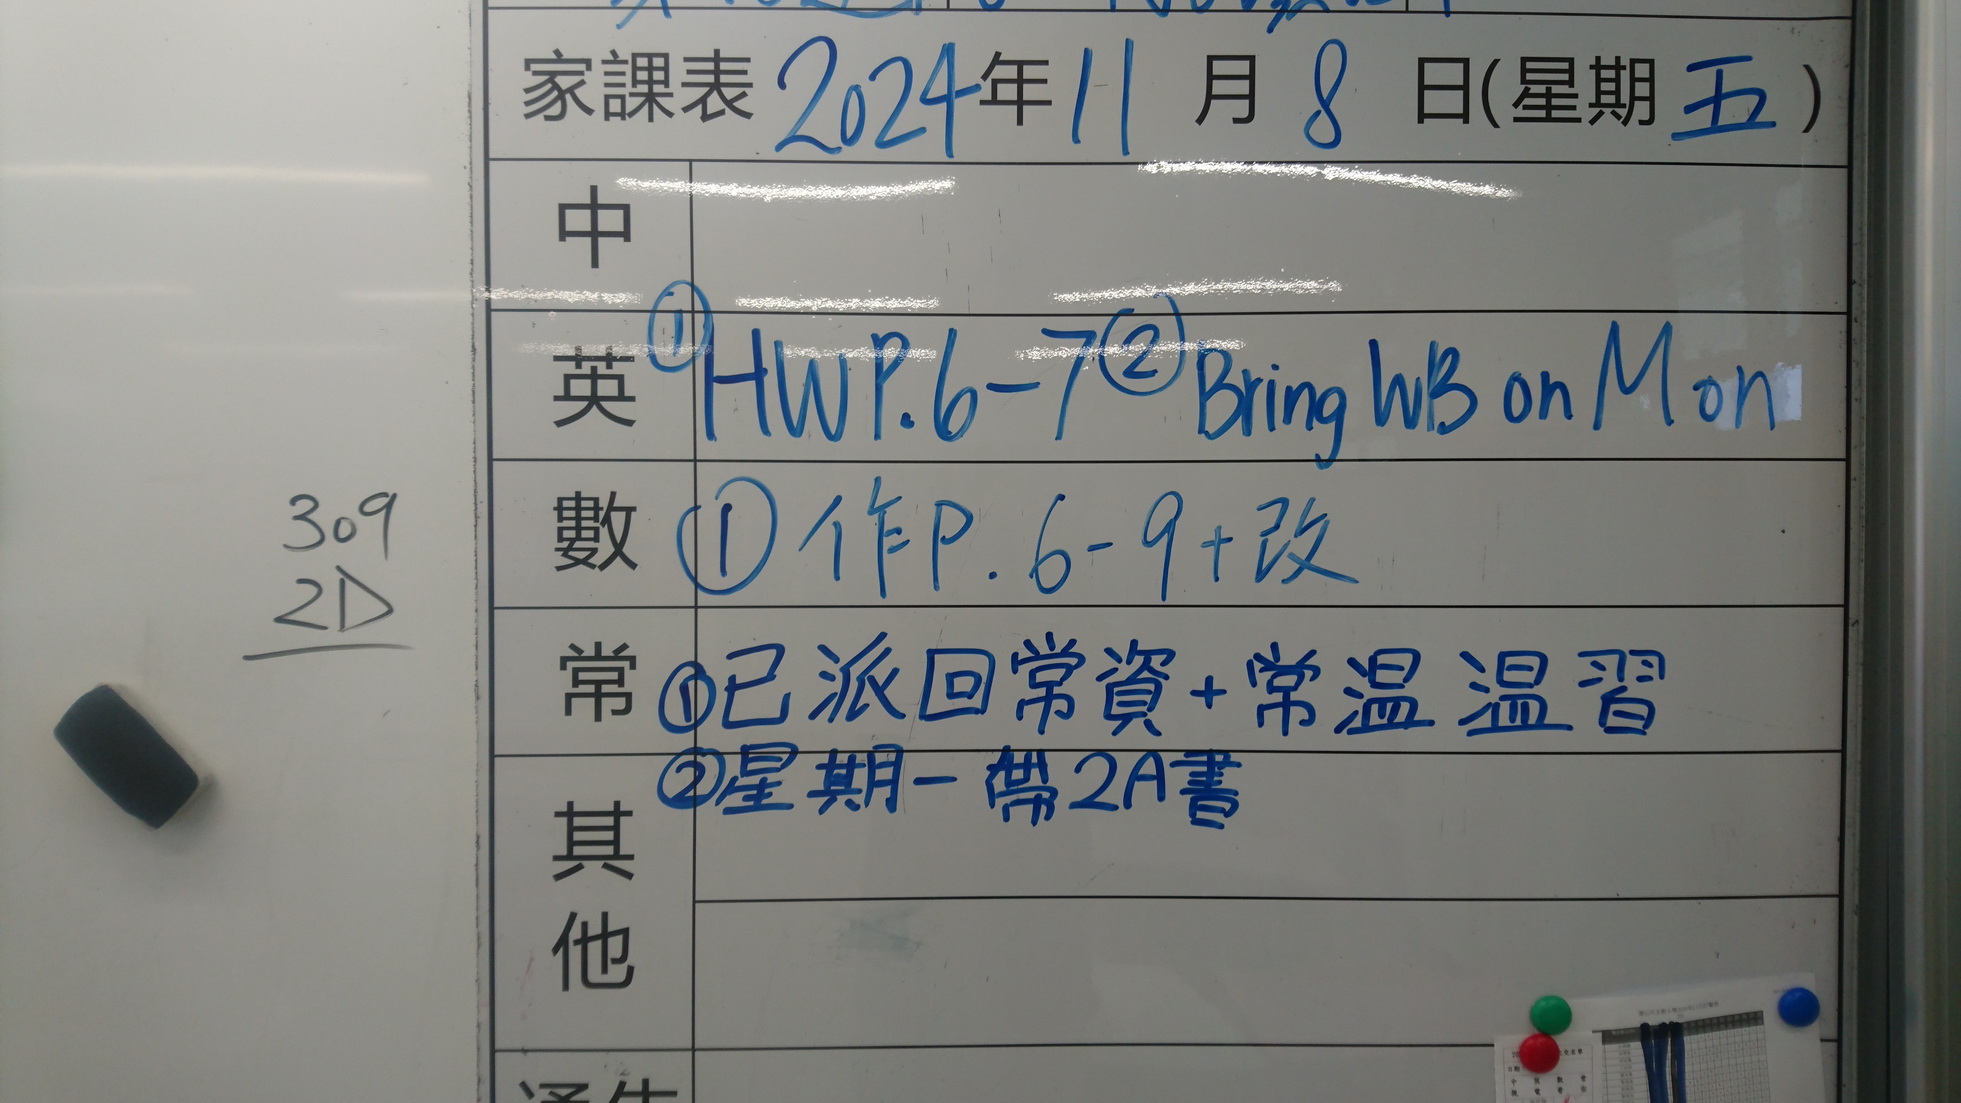 家課表 2024年11月8日(星期五)
中
英 ①HW P.6-7 ②Bring WB on Mon
數 ①作P.6-9+改
常 ①已派回常資+常温温習
②星期一帶2A書
其他
309
2D